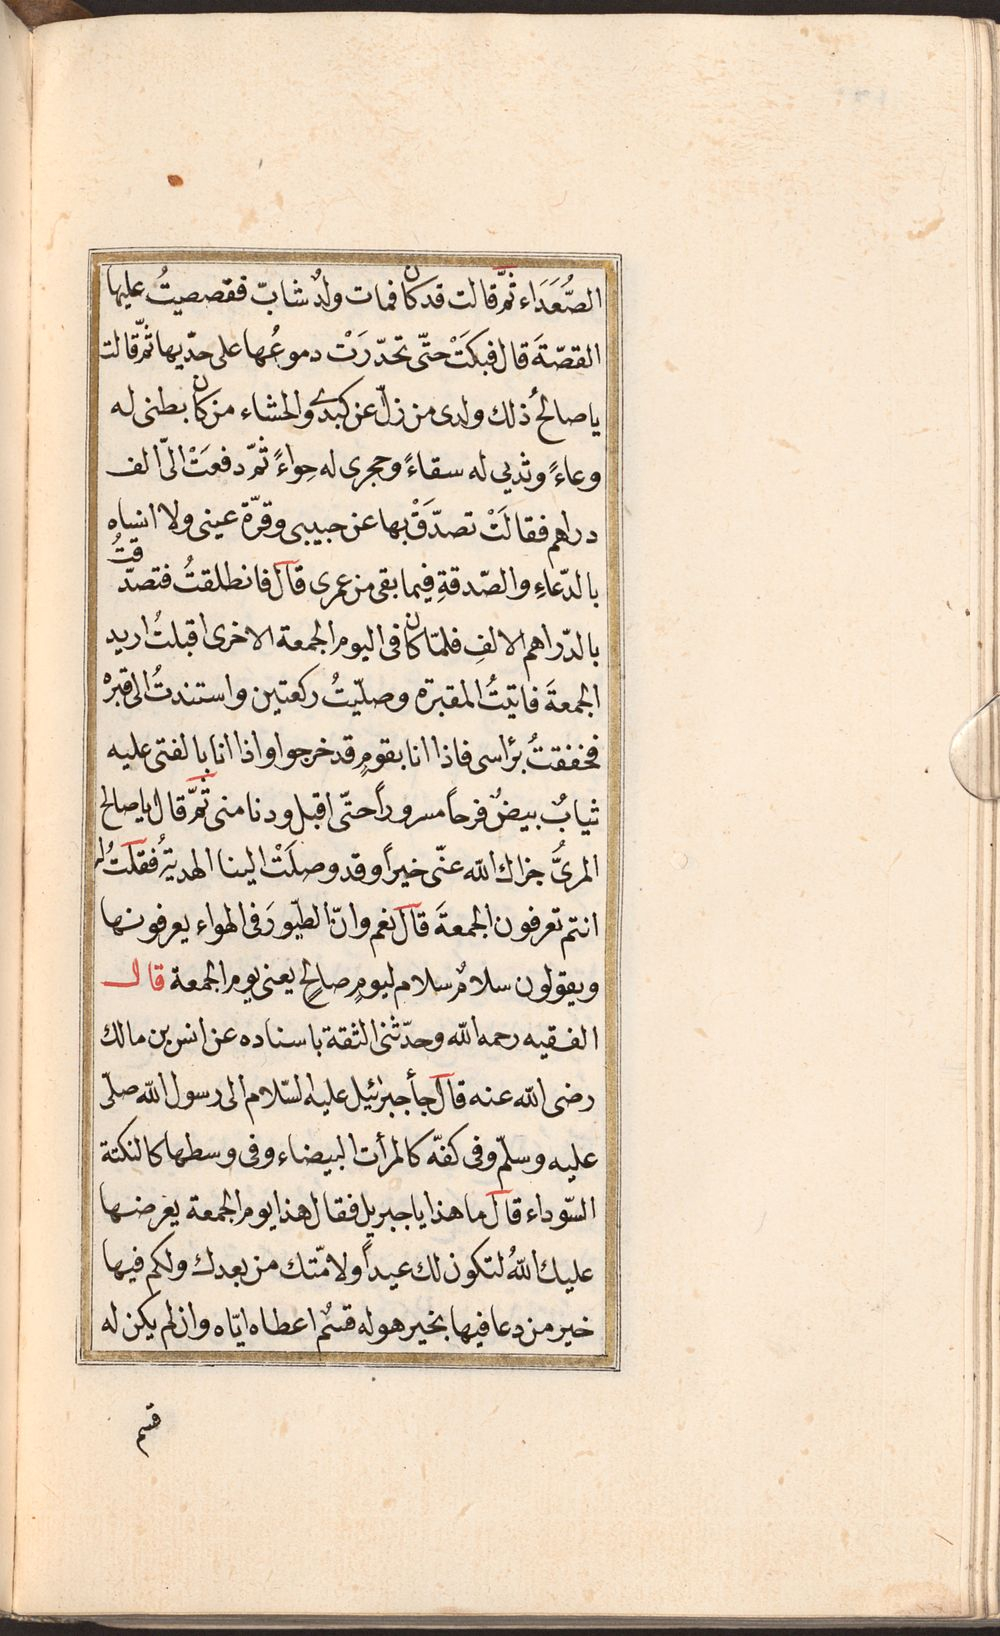 الصُّعَدَاء ثمّ قالت قد كان فمات ولدٌ شابّ فقصصيتُ عليها
القصّةَ قال فبكَتْ حتّى تحدّرَتْ دموعُها على خدّيها ثمّ قالت
يا صالحُ ذلك ولدى من زلّ عن كبدى والحشاء من كان بطنى له
وعاءً وثديى له سقاءً وحجرى له حِواءً ثمّ دفعَتْ الىّ الف
دراهم فقالَتْ تصدّقْ بها عن حبيبى وقرّة عينى ولا انساه
بالدّعاءِ والصّدقةِ فيما بقى من عمرى قال فانطلقتُ فتصدّقتُ
بالدّراهم الالفِ فلمّا كان فى اليوم الجمعة الاخرى اقبلتُ اريد
الجمعةَ فاتيتُ المقبرة وصلّيتُ ركعتين واستندتُ الى قبرْه
فخففقتُ برُاسى فاذا انا بقومٍ قد خرجوا واذا انا بالفتى عليه
ثيابٌ بيضٌ فرحاً مسروراً حتّى اقبل ودنا منى ثمّ قال يا صالح
المرىُّ جزاك الله عنّى خيراً وقد وصلَتْ الينا الهديّةُ فقلتُ له
انتم تعرفون الجمعةَ قال نعم وانّ الطّيورَ فى الهواء يعرفونها
ويقولون سلامٌ سلام ليومٍ صالحٍ يعنى يوم الجمعة قال
الفقيه رحمه الله وحدّثنى الثقة باسناده عن انس بن مالك
رضى الله عنه قال جأ جبرئيل عليه السّلام الى رسول الله صلّى
عليه وسلّم وفى كفّه كالمرأت البيضاء وفى وسطها كالنكتة
السّوداء قال ما هذا يا جبريل فقال هذا يوم الجمعة يعرضها
عليك اللهُ لتكون لك عيداً ولامّتك من بعدك ولكم فيها
خير من دعا فيها بخير هو له قسٌم اعطاه ايّاه وان لم يكن له
قسم